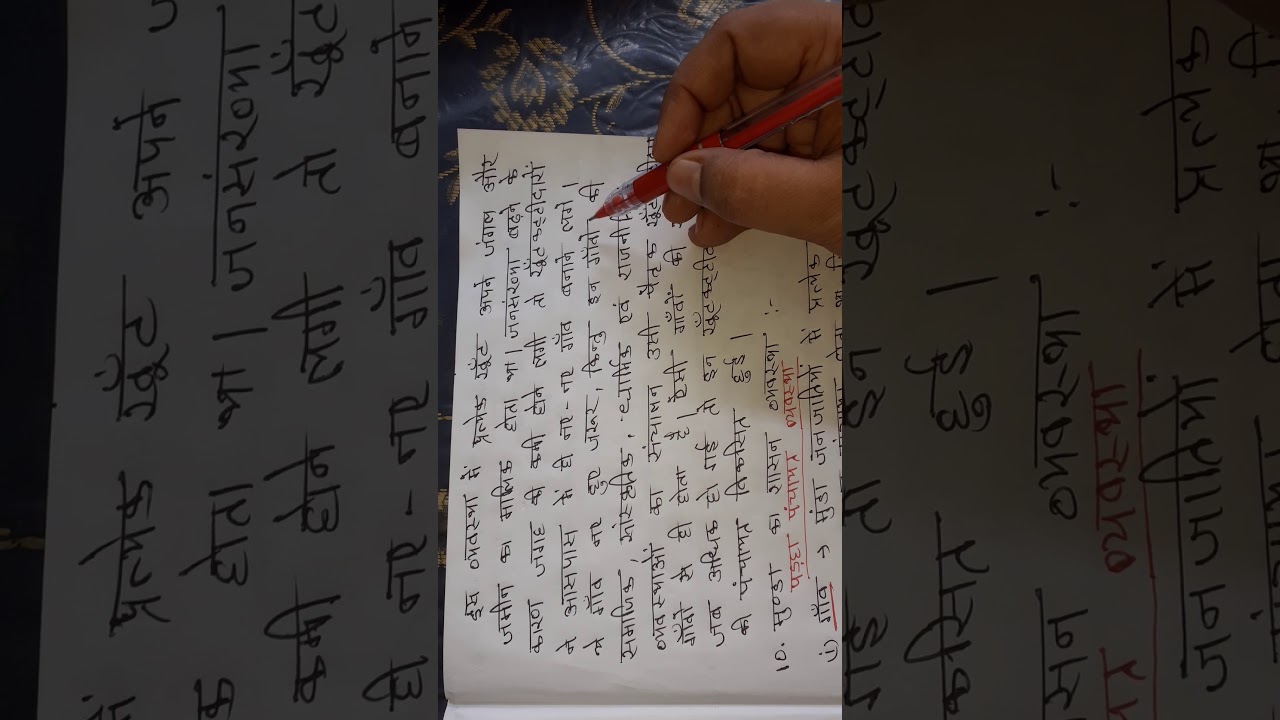 इस व्यवस्था में प्रत्येक खूँट अपने जंगल और
जमीन का मालिक होता था। जनसंख्या बढ़ने के
कारण जगह की कमी होने लगी तो खूँटकट्टीदारों
ने आसपास में ही नए-नए गाँव बनाने लगे।
ये गाँव नए हुए जरूर, किन्तु इन गाँवो की
समाजिक सांस्कृतिक, धार्मिक एवं राजनीति
व्यवस्थाओं का संचालन उसी पैतृक खूँट
गाँवों से ही होता है। ऐसी गाँवों की
जब अधिक हो गई तो इन खूँटकट्टीद
की पंचायत विकसित हुई।
10. मुण्डा का शासन व्यवस्था :-
पड़हा पंचायत व्यवस्था
i) गाँव → मुंडा जनजातियों में प्रत्येक